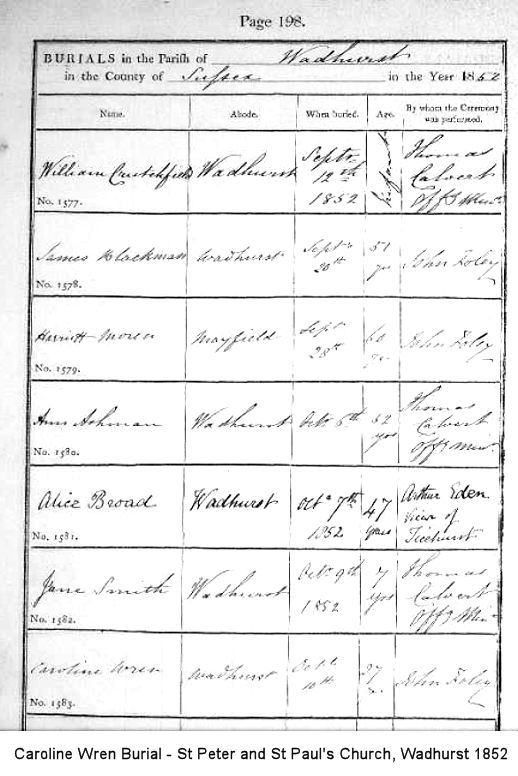 Page 198.
BURIALS in the Parish of Wadhurst
in the County of Sussex in the Year 1852
Name. Abode. When buried. Age. By whom the Ceremony was performed.
William Crutchfield Wadhurst Septr 12th 1852 Infant Thomas Calvert Offg Minr
No. 1577.
James Blackman Wadhurst Septr 20th 51 yrs John Foley
No. 1578.
Harriett Moren Mayfield Sept 28th 60 yrs John Foley
No. 1579.
Ann Ashman Wadhurst Octr 6th 52 yrs Thomas Calvert Offg Minr
No. 1580.
Alice Broad Wadhurst Octr 7th 1852 47 years Arthur Eden Vicar of Ticehurst
No. 1581.
Jane Smith Wadhurst Octr 9th 1852 7 yrs Thomas Calvert Offg Minr
No. 1582.
Caroline Wren Wadhurst Octr 10th John Foley
No. 1583.
Caroline Wren Burial - St Peter and St Paul's Church, Wadhurst 1852